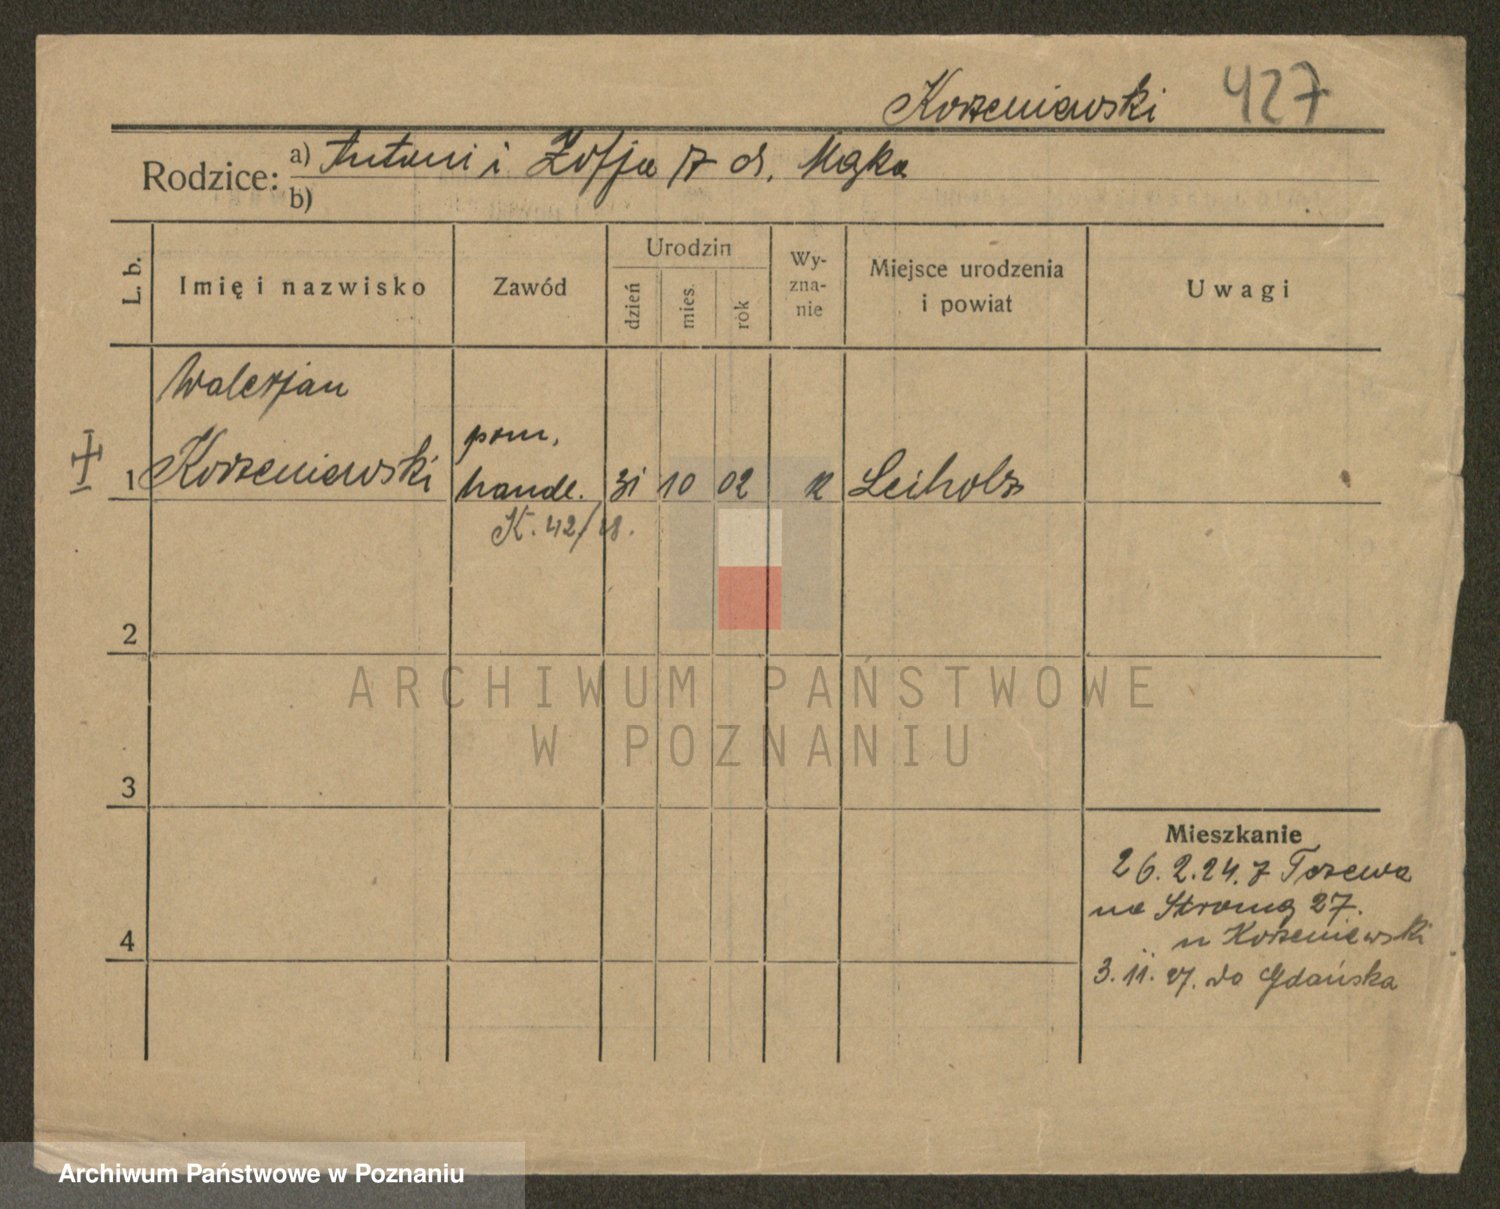 Korzeniewski 427
Rodzice: a) Antoni i Zofja z d. Mąka
b)
L. b.
Imię i nazwisko
Zawód
Urodzin
dzień
mies.
rok
Wy-
zna-
nie
Miejsce urodzenia
i powiat
Uwagi
Walerjan
1 Korzeniewski
pom.
handl.
31 10 02 k Leiholz
K. 42/28.
2
3
4
Mieszkanie
26.2.24. z Tczewa
na Stromą 27.
u Korzeniewski
3.11.27. do Gdańska
ARCHIWUM PAŃSTWOWE
W POZNANIU
Archiwum Państwowe w Poznaniu